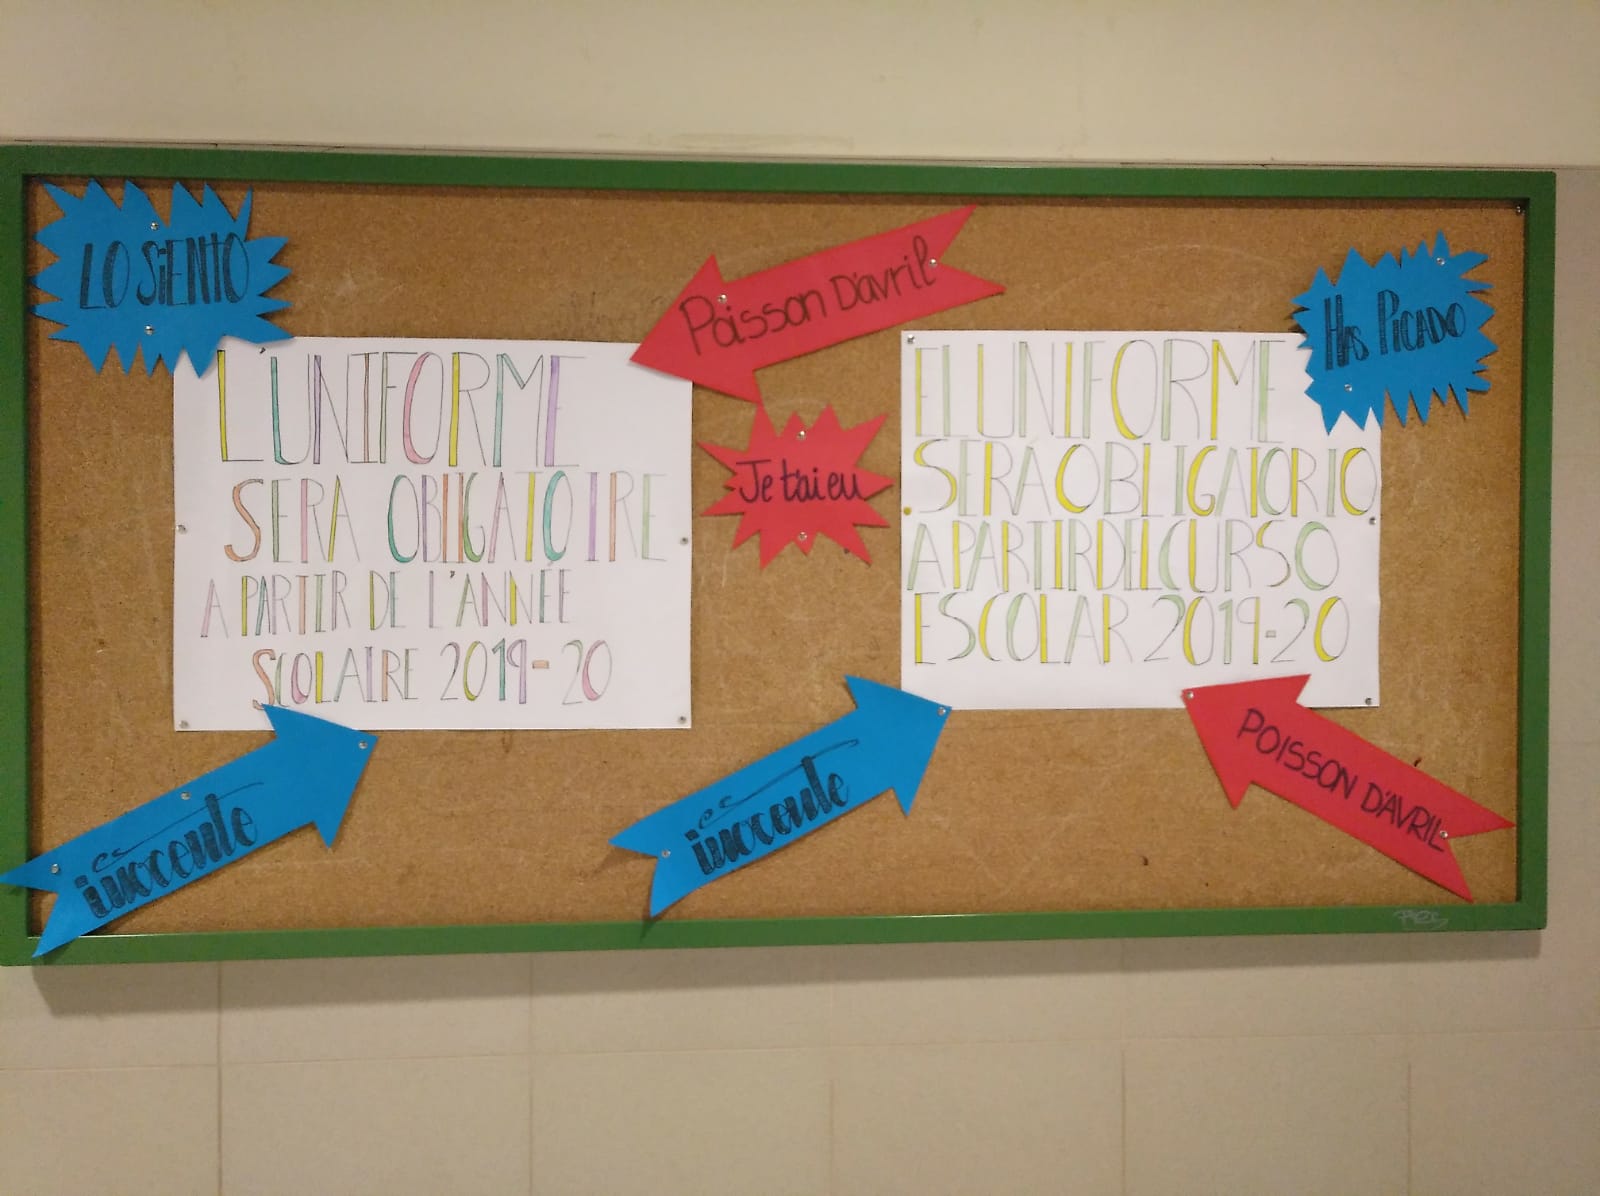 LO SIENTO
L'UNIFORME
SERA OBLIGATOIRE
A PARTIR DE L'ANNÉE
SCOLAIRE 2019-20
Poisson D'avril
Je t'ai eu
EL UNIFORME
SERÁ OBLIGATORIO
A PARTIR DEL CURSO
ESCOLAR 2019-20
HAS PICADO
es
inocente
es
inocente
POISSON D'AVRIL